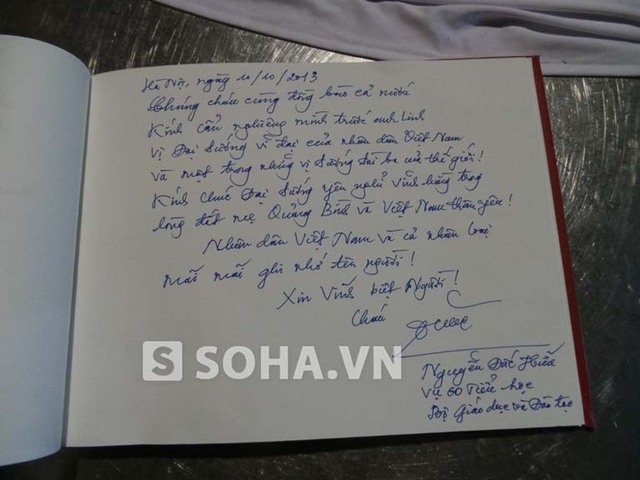 Hà Nội, ngày 10/10/2013
Chúng cháu cùng đồng bào cả nước
Kính cẩn nghiêng mình trước anh linh
vị Đại tướng vĩ đại của nhân dân Việt Nam
và một trong những vị tướng tài ba của thế giới!
Kính chúc Đại tướng yên nghỉ vĩnh hằng trong
lòng đất mẹ Quảng Bình và Việt Nam thân yêu!
Nhân dân Việt Nam và cả nhân loại
mãi mãi ghi nhớ tên người!
Xin Vĩnh biệt Người!
Cháu
S SOHA.VN
Nguyễn Đức Hữu
Vụ GD Tiểu học
Bộ Giáo dục và Đào tạo